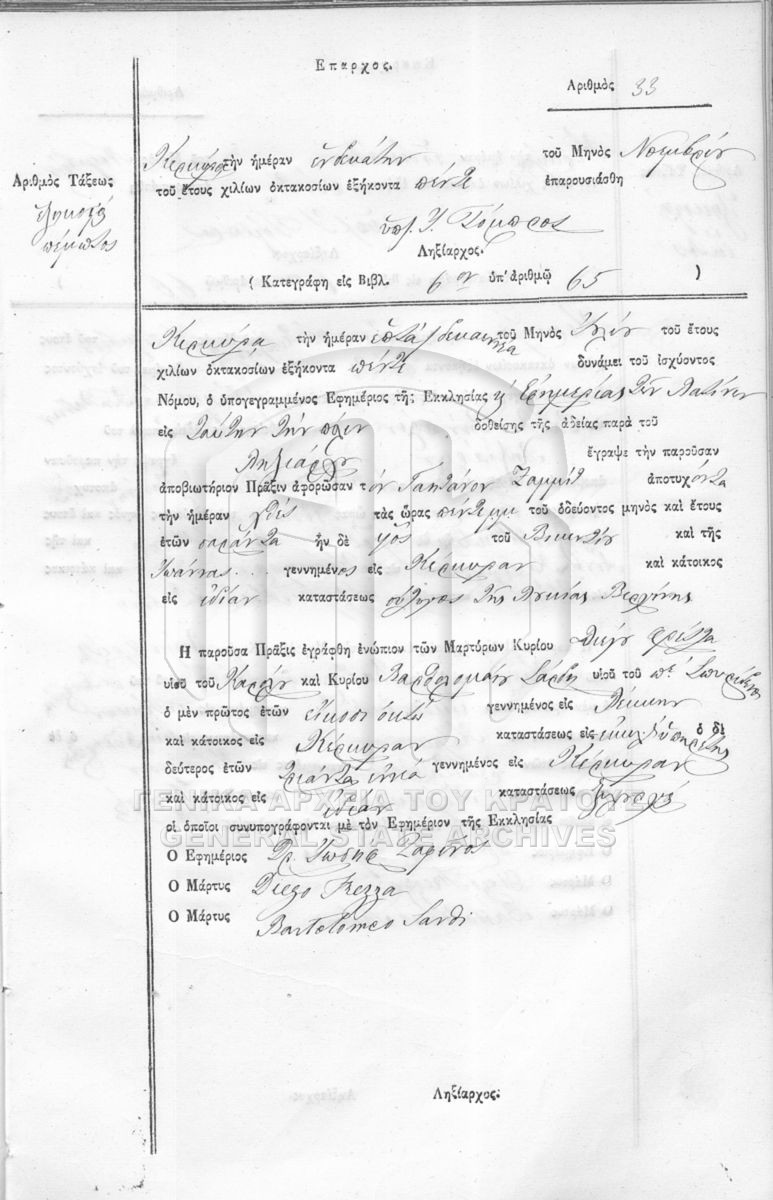 Επαρχος.
Αριθμὸς 33
Κέρκυρα τὴν ἡμέραν ἑνδεκάτην τοῦ Μηνὸς Νοεμβρίου
Αριθμὸς Τάξεως
τοῦ ἔτους χιλίων ὀκτακοσίων ἑξήκοντα πέντε ἐπαρουσιάσθη
πέμπτος
Ληξίαρχος.
( Κατεγράφη εἰς Βιβλ. 6 ον ὑπ' ἀριθμῷ 65 )
Κερκύρα τὴν ἡμέραν ἑπτά / δεκαεννέα τοῦ Μηνὸς Ἰουλίου τοῦ ἔτους
χιλίων ὀκτακοσίων ἑξήκοντα πέντε δυνάμει τοῦ ἰσχύοντος
Νόμου, ὁ ὑπογεγραμμένος Ἐφημέριος τῆς Ἐκκλησίας ἡ Ἐφημερίας τῶν Λατίνων
εἰς ταύτην τὴν πόλιν δοθείσης τῆς ἀδείας παρὰ τοῦ
Ληξιάρχου ἔγραψε τὴν παροῦσαν
ἀποβιωτήριον Πρᾶξιν ἀφορῶσαν τὸν Γαητάνον Ζαμμίτ ἀποτυχόντα
τὴν ἡμέραν χθές τὰς ὥρας πέντε μμ τοῦ ὁδεύοντος μηνὸς καὶ ἔτους
ἐτῶν σαράντα ἦν δὲ υἱὸς τοῦ Βικεντίου καὶ τῆς
Ἰωάννας γεννημένος εἰς Κέρκυραν καὶ κάτοικος
εἰς ἰδίαν καταστάσεως σύζυγος τῆς Λουκίας
Η παροῦσα Πρᾶξις ἐγράφθη ἐνώπιον τῶν Μαρτύρων Κυρίου
υἱοῦ τοῦ Καρόλου καὶ Κυρίου Βαρθολομαίου Σάρδη υἱοῦ τοῦ πτέ Σπυρίδωνος
ὁ μὲν πρῶτος ἐτῶν εἴκοσι ὀκτώ γεννημένος εἰς
καὶ κάτοικος εἰς Κέρκυραν καταστάσεως ὁ δὲ
δεύτερος ἐτῶν τριάντα ἐννέα γεννημένος εἰς Κέρκυραν
καὶ κάτοικος εἰς ἰδίαν καταστάσεως
οἱ ὁποῖοι συνυπογράφονται μὲ τὸν Ἐφημέριον τῆς Ἐκκλησίας
ΓΕΝΙΚΑ ΑΡΧΕΙΑ ΤΟΥ ΚΡΑΤΟΥΣ
GENERAL STATE ARCHIVES
Ο Ἐφημέριος Δρ Ἰωσήφ Ζαφῖνος
Ο Μάρτυς Diego Frezza
Ο Μάρτυς Bartolomeo Sardi
Ληξίαρχος: